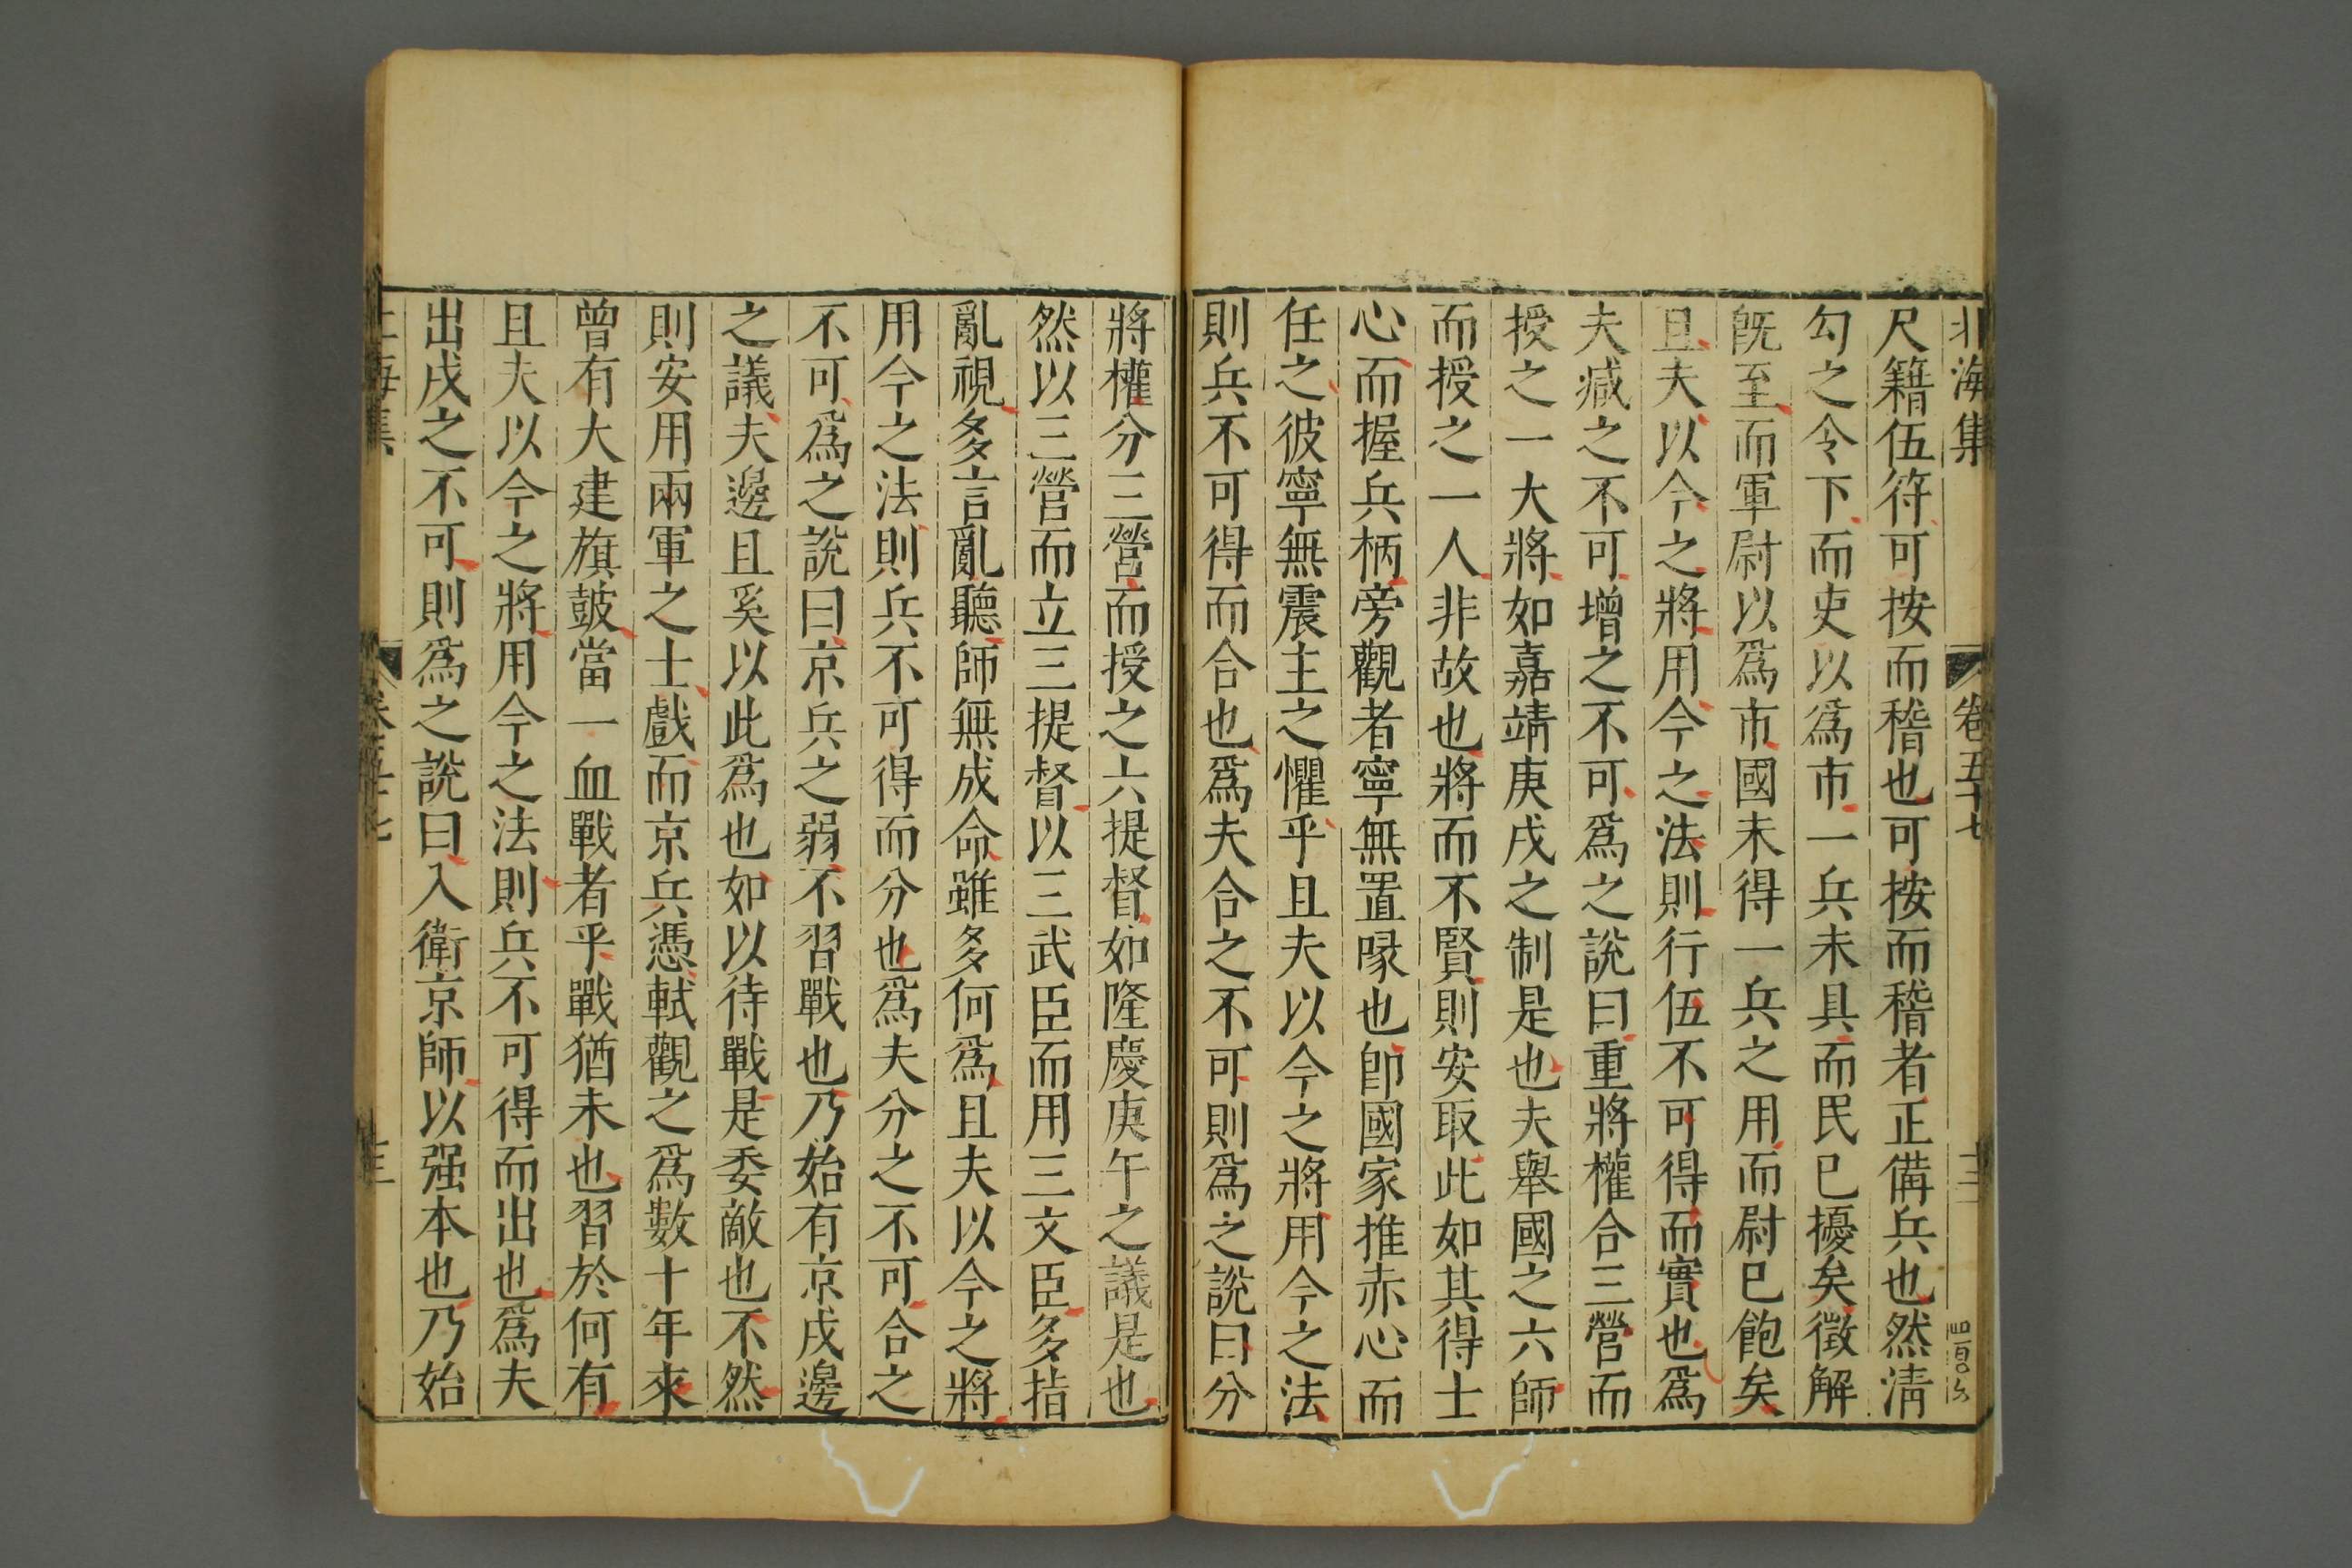 北海集
卷五十七
十二
尺籍伍符可按而稽也可按而稽者正備兵也然清
勾之令下而吏以爲市一兵未具而民已擾矣徵解
旣至而軍尉以爲市國未得一兵之用而尉已飽矣
且夫以今之將用今之法則行伍不可得而實也爲
夫減之不可增之不可爲之說曰重將權合三營而
授之一大將如嘉靖庚戌之制是也夫舉國之六師
而授之一人非故也將而不賢則安取此如其得士
心而握兵柄旁觀者寧無置喙也卽國家推赤心而
任之彼寧無震主之懼乎且夫以今之將用今之法
則兵不可得而合也爲夫合之不可則爲之說曰分
將權分三營而授之六提督如隆慶庚午之議是也
然以三營而立三提督以三武臣而用三文臣多指
亂視多言亂聽師無成命雖多何爲且夫以今之將
用今之法則兵不可得而分也爲夫分之不可合之
不可爲之說曰京兵之弱不習戰也乃始有京戍邊
之議夫邊且奚以此爲也如以待戰是委敵也不然
則安用兩軍之士戲而京兵憑軾觀之爲數十年來
曾有大建旗鼓當一血戰者乎戰猶未也習於何有
且夫以今之將用今之法則兵不可得而出也爲夫
出戍之不可則爲之說曰入衛京師以强本也乃始